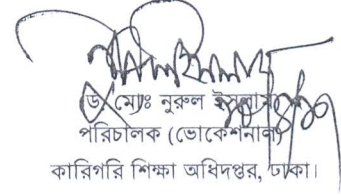 ড. মোঃ নুরুল ইসলাম
পরিচালক (ভোকেশনাল)
কারিগরি শিক্ষা অধিদপ্তর, ঢাকা।